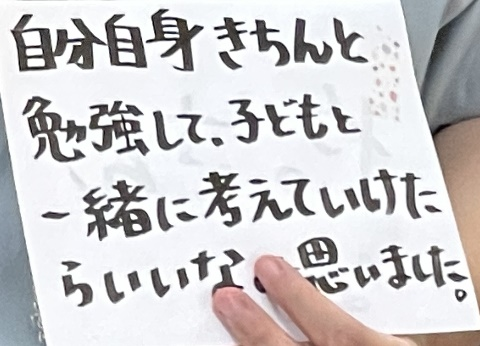 自分自身きちんと
勉強して、子どもと
一緒に考えていけた
らいいな 思いました。